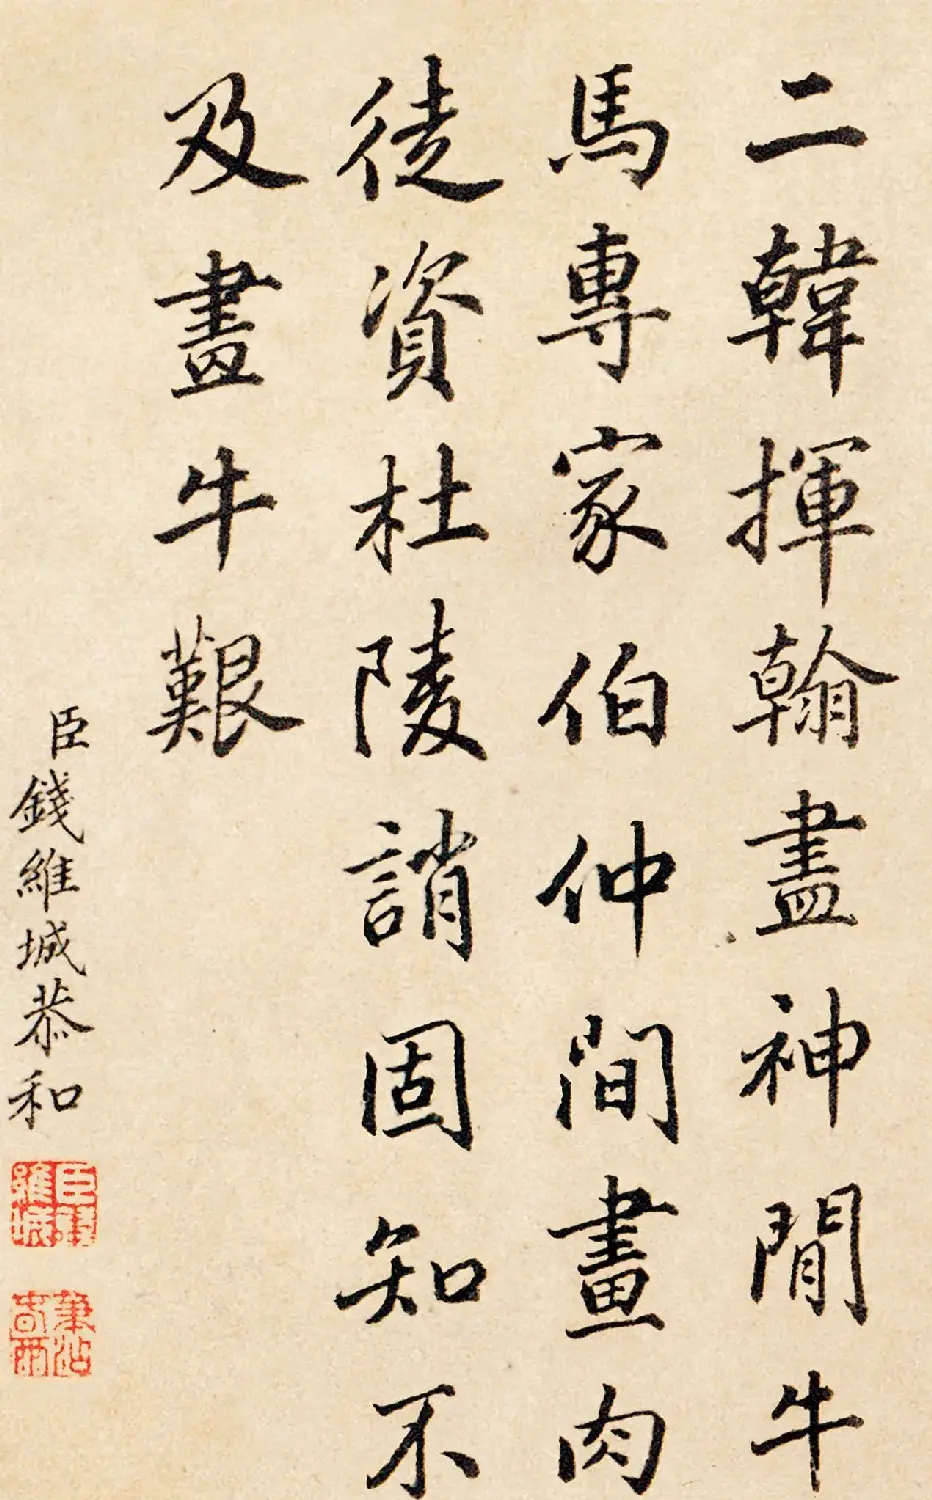 二韓揮翰盡神閒牛
馬專家伯仲間畫肉
徒資杜陵誚固知不
及畫牛艱
臣錢維城恭和